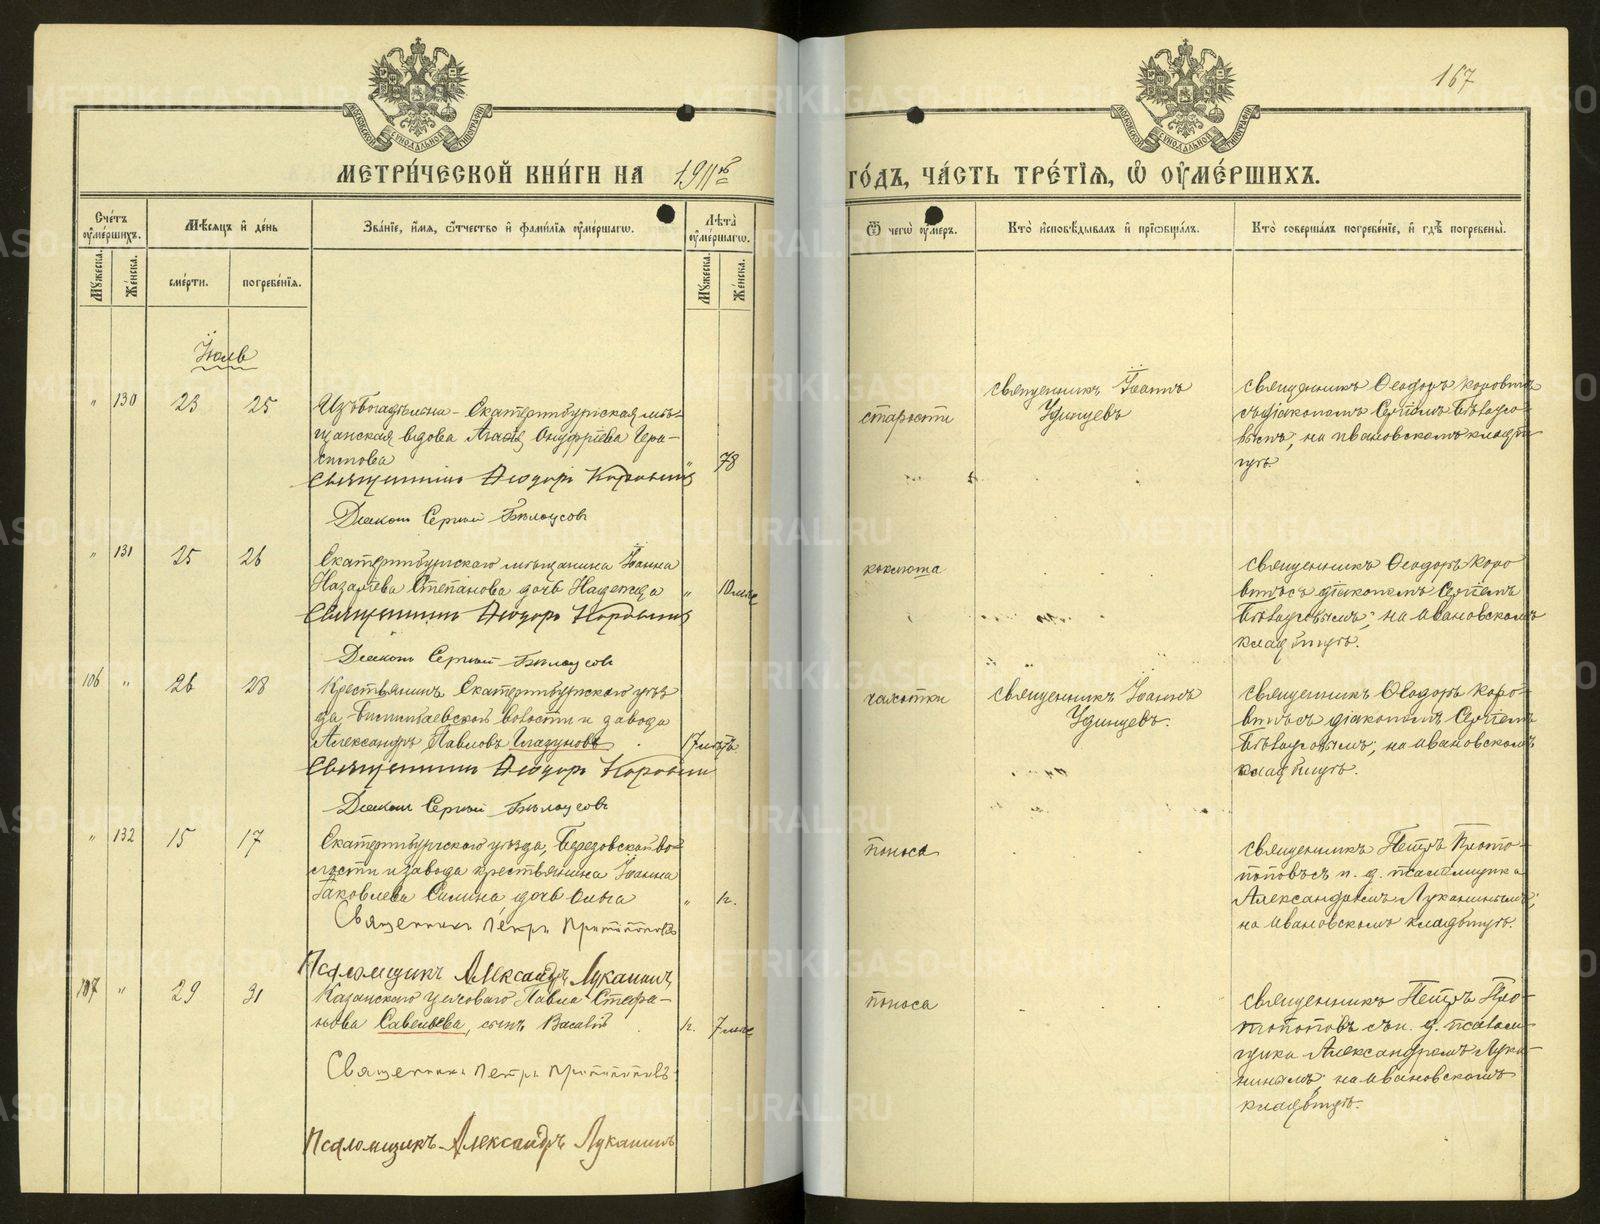 167
МЕТРИ́ЧЕСКОЙ КНИ́ГИ НА 1911й
ГО́ДЪ, ЧА́СТЬ ТРЕ́ТІѦ, Ѡ҆ ОУ҆МЕ́РШИХЪ.
Сче́тъ оу҆ме́ршихъ.
Мѣ́сяцъ и҆ де́нь
Зва́нїе, и҆́мя, ѻ҆́тчество и҆ фами́лїя оу҆ме́ршагѡ.
Лѣ́та оу҆ме́ршагѡ.
Ѿ чегѡ̀ оу҆́меръ.
Кто̀ и҆сповѣ́дывалъ и҆ прїѡбща́лъ.
Кто̀ соверша́лъ погребе́нїе, и҆ гдѣ̀ погребены̀.
Мꙋ́жеска.
Же́нска.
сме́рти.
погребе́нїя.
Мꙋ́жеска.
Же́нска.
Іюль
" 130 23 25
Изъ богадѣльни - Екатеринбургская мѣ-
щанская вдова Агафія Онуфріева Гера-
симова " 78
Священникъ Ѳеодоръ Коровинъ
Діаконъ Сергій Бѣлоусовъ
старости
священникъ Іоаннъ
Удинцевъ
священникъ Ѳеодоръ Коровинъ
съ діакономъ Сергіемъ Бѣлоусо-
вымъ, на Ивановскомъ кладби-
щѣ
" 131 25 26
Екатеринбургскаго мѣщанина Іоанна
Назарьева Степанова дочь Надежда " 10 мѣс
Священникъ Ѳеодоръ Коровинъ
Діаконъ Сергій Бѣлоусовъ
коклюша
священникъ Ѳеодоръ Коро
винъ съ діакономъ Сергіемъ
Бѣлоусовымъ, на Ивановскомъ
кладбищѣ.
106 " 26 28
Крестьянинъ Екатеринбургскаго уѣз
да, Билимбаевской волости и завода
Александръ Павловъ Глазуновъ 17 лѣтъ
Священникъ Ѳеодоръ Коровинъ
Діаконъ Сергій Бѣлоусовъ
чахотки
священникъ Іоаннъ
Удинцевъ.
священникъ Ѳеодоръ Коро-
винъ съ діакономъ Сергіемъ
Бѣлоусовымъ, на Ивановскомъ
кладбищѣ.
" 132 15 17
Екатеринбургскаго уѣзда, Березовской во-
лости и завода крестьянина Іоанна
Іаковлева Силина дочь Ольга " н.
Священникъ Петръ Протопоповъ
Псаломщикъ Александръ Луканинъ
поноса
священникъ Петръ Прото-
поповъ съ и. д. псаломщика
Александромъ Луканинымъ,
на Ивановскомъ кладбищѣ.
107 " 29 31
Казанскаго цеховаго Павла Стефа-
нова Савельева, сынъ Василій н. 7 мѣс
Священникъ Петръ Протопоповъ
Псаломщикъ Александръ Луканинъ
поноса
священникъ Петръ Про-
топоповъ съ и. д. псалом-
щика Александромъ Лука-
нинымъ, на Ивановскомъ
кладбищѣ.
METRIKI.GASO-URAL.RU